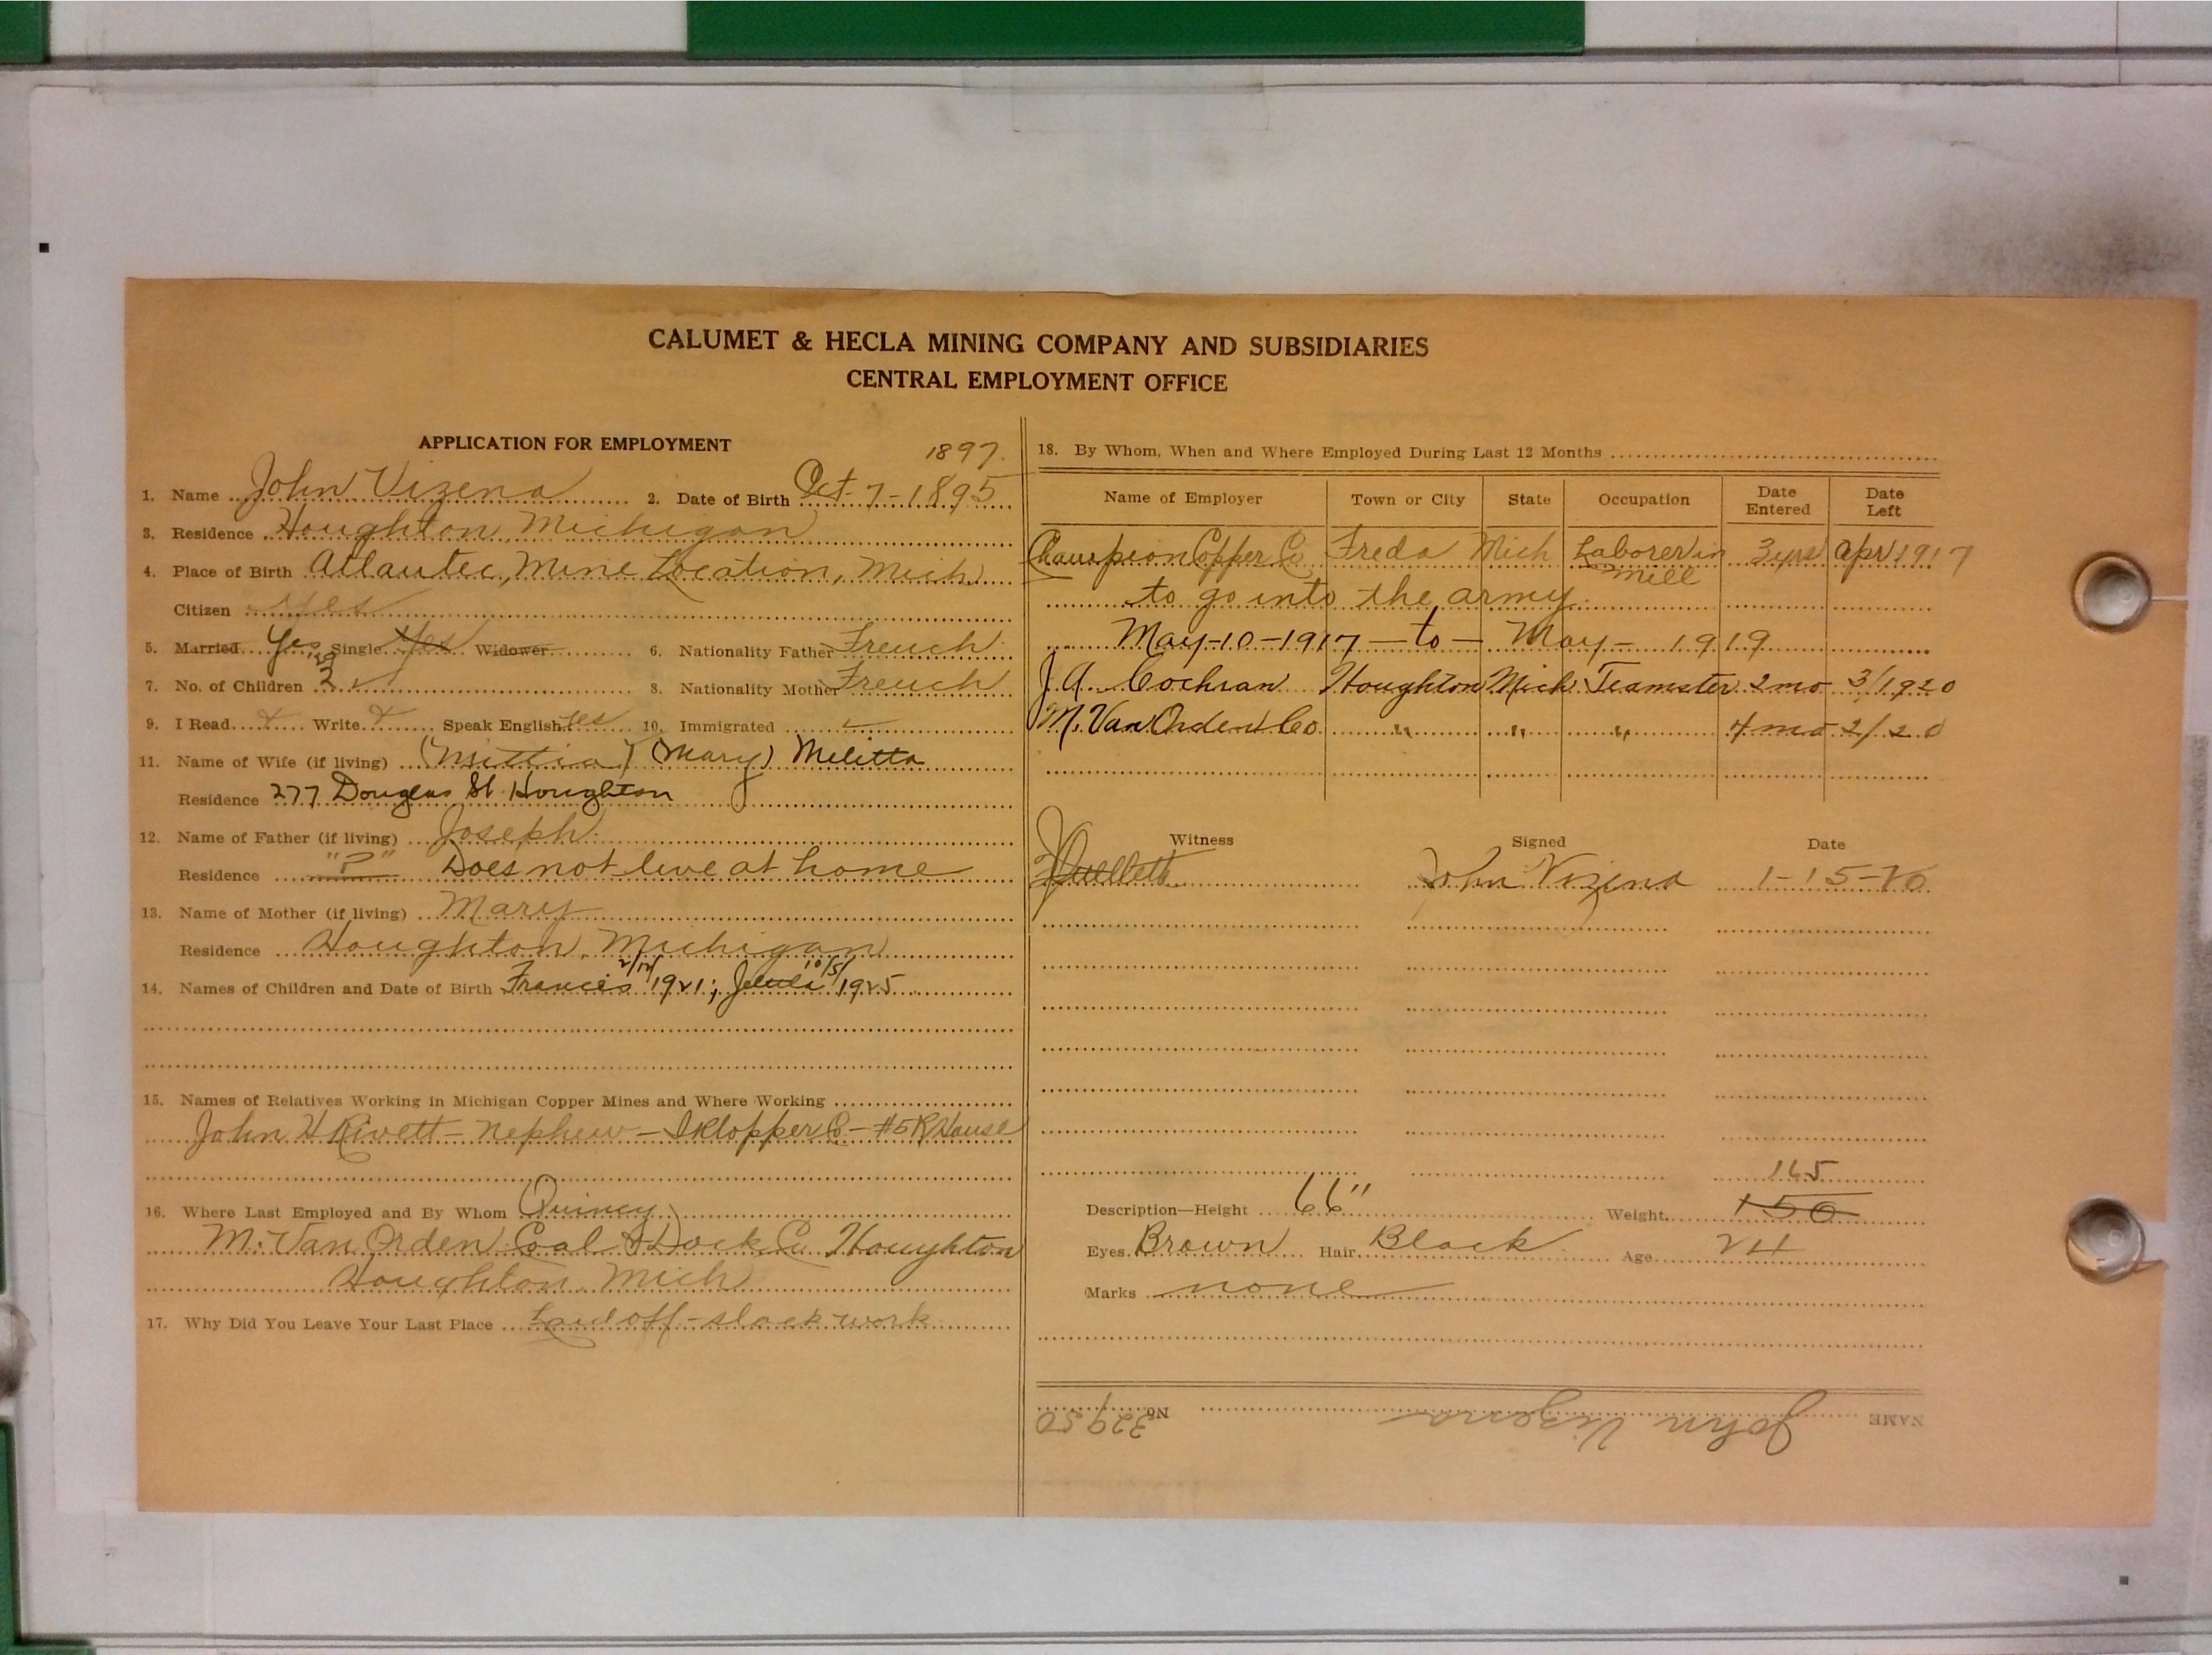 CALUMET & HECLA MINING COMPANY AND SUBSIDIARIES
CENTRAL EMPLOYMENT OFFICE
APPLICATION FOR EMPLOYMENT
1897.
1. Name John Vizena 2. Date of Birth Oct-7-1895
3. Residence Houghton, Michigan
4. Place of Birth Atlantec, Mine Location, Mich.
Citizen Yes
5. Married Yes Single Yes Widower 6. Nationality Father French
7. No. of Children 2 8. Nationality Mother French
9. I Read Write Speak English Yes 10. Immigrated
11. Name of Wife (if living) (Mary) Melitta
Residence 277 Douglas St Houghton
12. Name of Father (if living) Joseph
Residence "?" Does not live at home
13. Name of Mother (if living) Mary
Residence Houghton, Michigan
14. Names of Children and Date of Birth Francis 2/12/1921; 10/5/1925
15. Names of Relatives Working in Michigan Copper Mines and Where Working
John H Rivett - Nephew - - #5 R House
16. Where Last Employed and By Whom Quincy
M. Van Orden Coal & Dock Co. Houghton
Houghton Mich
17. Why Did You Leave Your Last Place Laid off - slack work
18. By Whom, When and Where Employed During Last 12 Months
Name of Employer Town or City State Occupation Date Entered Date Left
Champion Copper Co Freda Mich Laborer in mill 3 yrs Apr 1917
to go into the army.
May-10-1917 — to — May - 1919
J. A. Cochran Houghton Mich Teamster 2 mo 3/1920
M. Van Orden Co. " " " 4 mo 2/20
Witness Signed Date
John Vizina 1-15-20
165
Description—Height 66" Weight 150
Eyes Brown Hair Black Age 24
Marks none
NAME John Vizena No. 32950